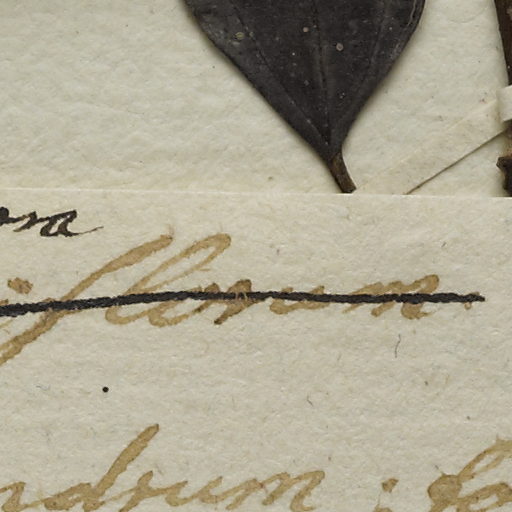 ora
iflorum.
ndrum; fo